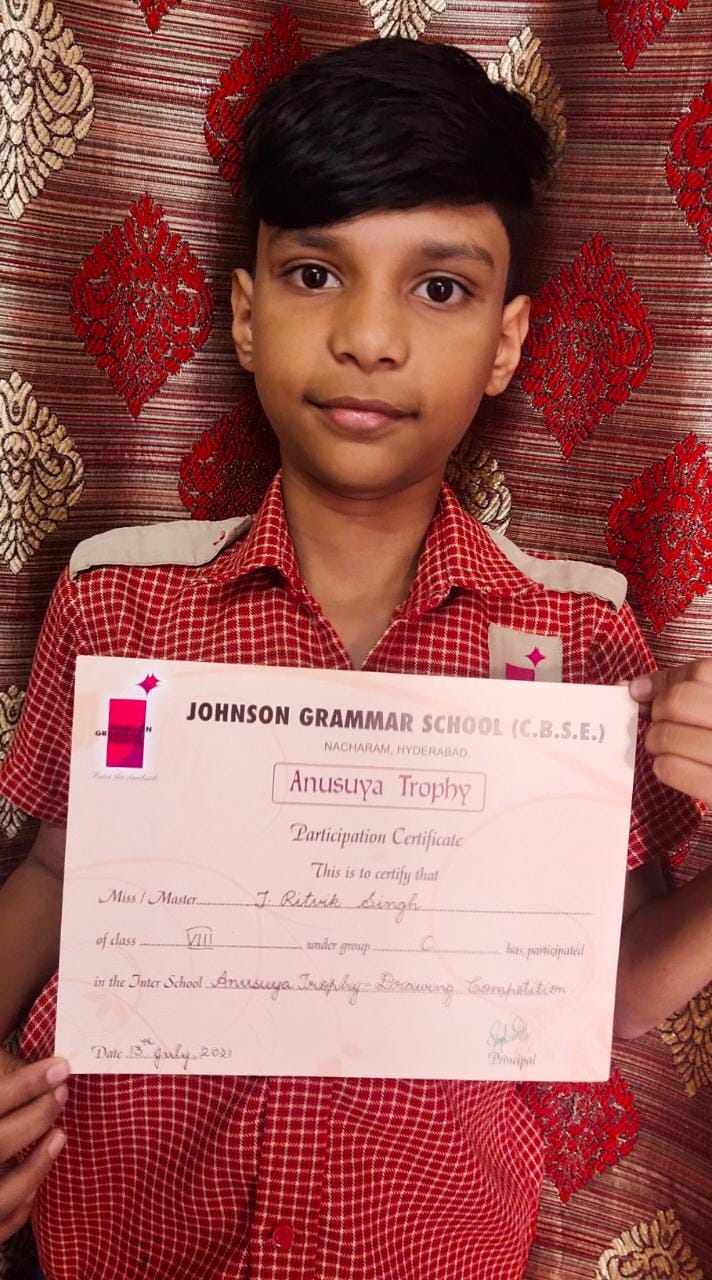 JOHNSON GRAMMAR SCHOOL (C.B.S.E.)
NACHARAM, HYDERABAD.
Anusuya Trophy
Participation Certificate
This is to certify that
Miss / Master J. Ritvik Singh
of class VIII under group C has participated
in the Inter School Anusuya Trophy - Drawing Competition.
Date 13th July 2021
Principal